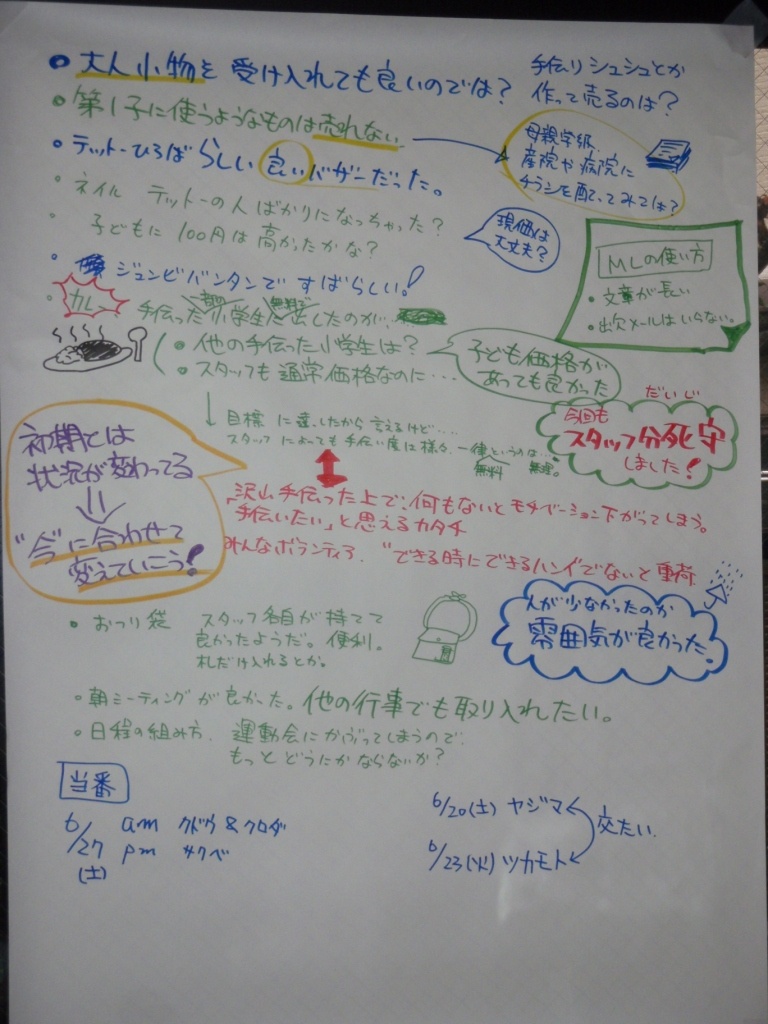 ・大人小物を受け入れても良いのでは?
手伝リシュシュとか
作って売るのは?
・第1子に使うようなものは売れない
母親学級、
産院や病院に
チラシを配ってみては?
・テットーひろばらしい良いバザーだった。
・ネイル テットーの人ばかりになっちゃった?
・子どもに100円は高かったかな?
現価は
大丈夫?
MLの使い方
・文章が長い
・出欠メールはいらない。
・ジュンビバンタンですばらしい!
・カレー 手伝った小学生に出したのが、
無料で
・他の手伝った小学生は?
・スタッフも通常価格なのに…
子ども価格が
あっても良かった
目標に達したから言えるけど…
スタッフによっても手伝い度は様々、一律というのは…
無料 無理。
だいじ
今回も
スタッフ分死守
しました!
初期とは
状況が変わってる
"今"に合わせて
変えていこう!
沢山手伝った上で、何もないとモチベーション下がってしまう。
「手伝いたい」と思えるカタチ
みんなボランティア、"できる時にできるハンイでないと重荷
人が少なかったのか
雰囲気が良かった
・おつり袋 スタッフ各自が持てて
良かったようだ。便利。
札だけ入れるとか。
・朝ミーティングが良かった。他の行事でも取り入れたい。
・日程の組み方、運動会にかぶってしまうので、
もっとどうにかならないか?
当番
6/27(土) am クドウ&クロダ
pm サクベ
6/20(土) ヤジマ
6/23(火) ツカモト
交たい